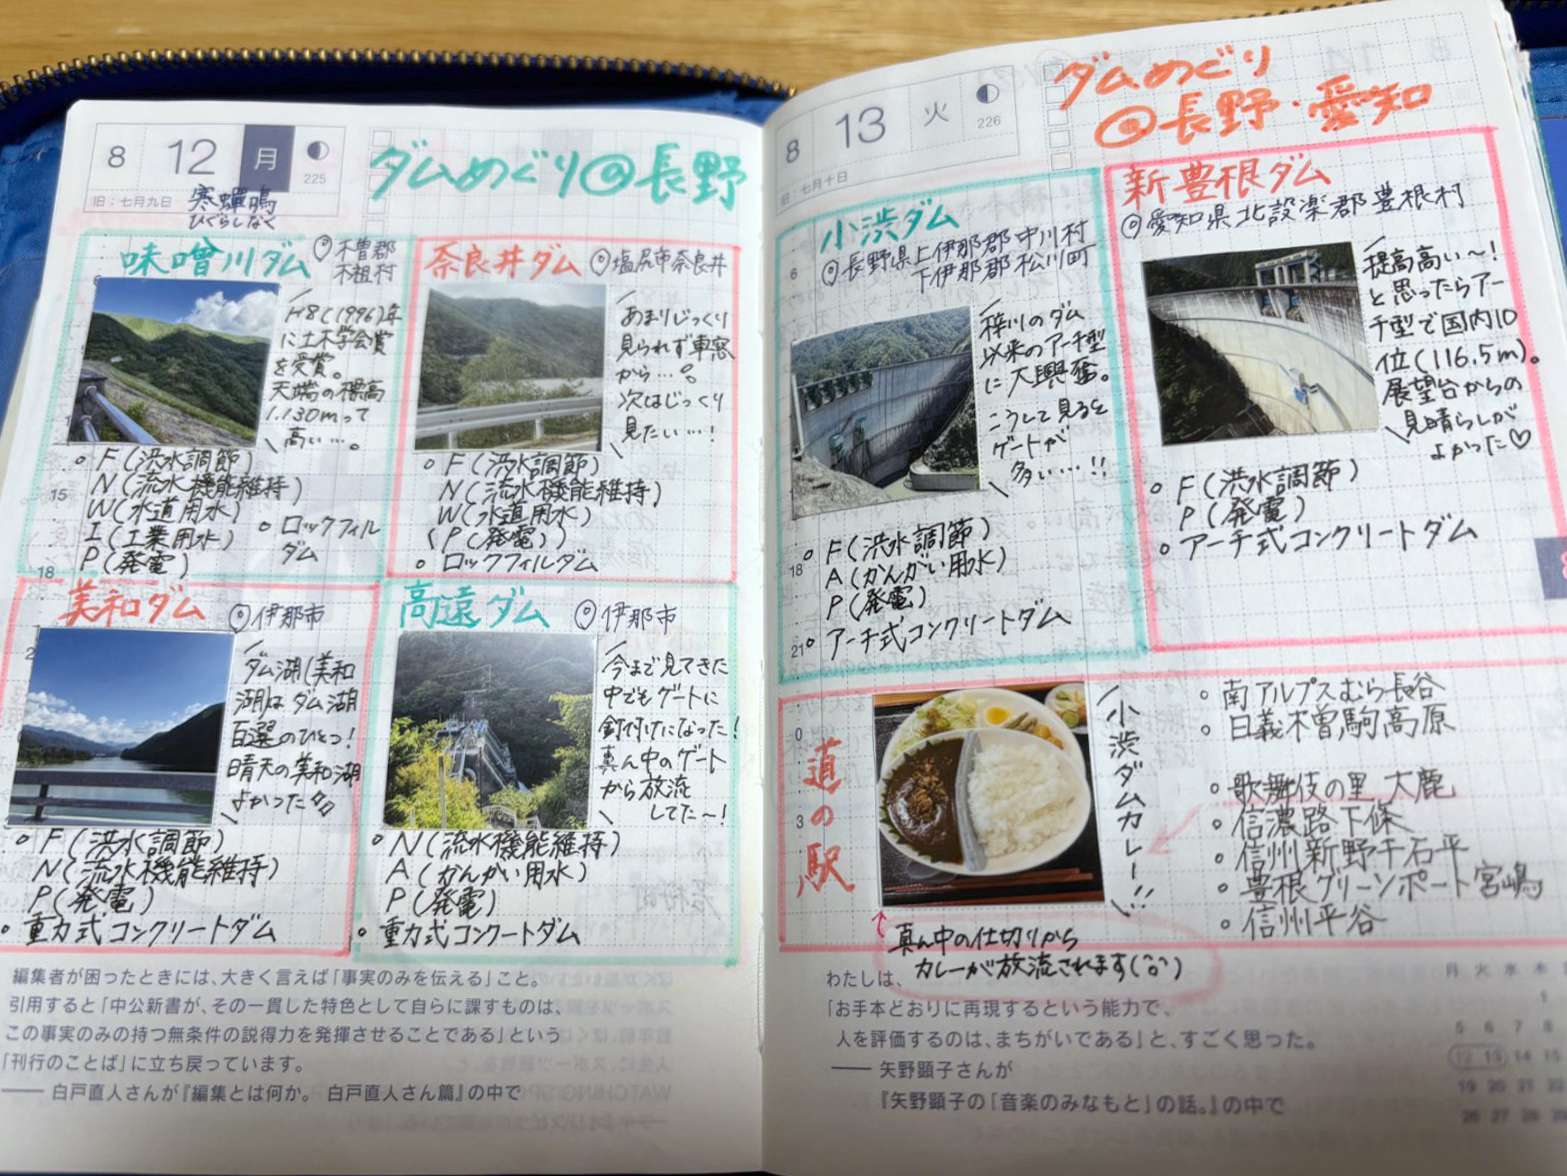 8 12 月 225
旧:七月九日
寒蟬鳴
ひぐらしなく
ダムめぐり@長野
味噌川ダム
木曽郡
木祖村
H8(1996)年
に土木学会賞
を受賞。
天端の標高
1.130mって
高い…。
○ F(洪水調節)
N(流水機能維持)
W(水道用水)
I(工業用水)
P(発電)
○ ロックフィル
ダム
奈良井ダム
塩尻市奈良井
あまりじっくり
見られず車窓
から…。
次はじっくり
見たい…!
○ F(洪水調節)
N(流水機能維持)
W(水道用水)
(P(発電))
○ ロックフィルダム
15
18
美和ダム
伊那市
ダム湖(美和
湖)はダム湖
百選のひとつ!
晴天の美和湖
よかった
○ F(洪水調節)
N(流水機能維持)
P(発電)
○ 重力式コンクリートダム
高遠ダム
伊那市
今まで見てきた
中でもゲートに
釘付けになった!
真ん中のゲート
から放流
してた~!
○ N(流水機能維持)
A(かんがい用水)
P(発電)
○ 重力式コンクートダム
編集者が困ったときには、大きく言えば「事実のみを伝える」こと。
引用すると「中公新書が、その一貫した特色として自らに課すものは、
この事実のみの持つ無条件の説得力を発揮させることである」という
「刊行のことば」に立ち戻っています。
—— 白戸直人さんが『編集とは何か。 白戸直人さん篇』の中で
8 13 火 226
旧:七月十日
ダムめぐり
@長野・愛知
小渋ダム
長野県上伊那郡中川村
下伊那郡松川町
梓川のダム
以来のアーチ型
に大興奮。
こうして見ると
ゲートが
多い…!!
○ F(洪水調節)
A(かんがい用水)
P(発電)
○ アーチ式コンクリートダム
新豊根ダム
愛知県北設楽郡豊根村
堤高高い~!
と思ったらアー
チ型で国内10
位(116.5m)。
展望台からの
見晴らしが
よかった♡
○ F(洪水調節)
P(発電)
○ アーチ式コンクリートダム
6
18
21
0
3
道の駅
小渋ダムカレー!!
真ん中の仕切りから
カレーが放流されます(^o^)
○ 南アルプスむら長谷
○ 日義木曽駒高原
○ 歌舞伎の里 大鹿
○ 信濃路下條
○ 信州新野千石平
○ 豊根グリーンポート宮嶋
○ 信州平谷
わたしは、
「お手本どおりに再現するという能力で、
人を評価するのは、まちがいである」と、すごく思った。
—— 矢野顕子さんが
『矢野顕子の「音楽のみなもと」の話。』の中で
月 火 水 木
1
5 6 7 8
12 13 14 15
19 20 21 22
26 27 28 29